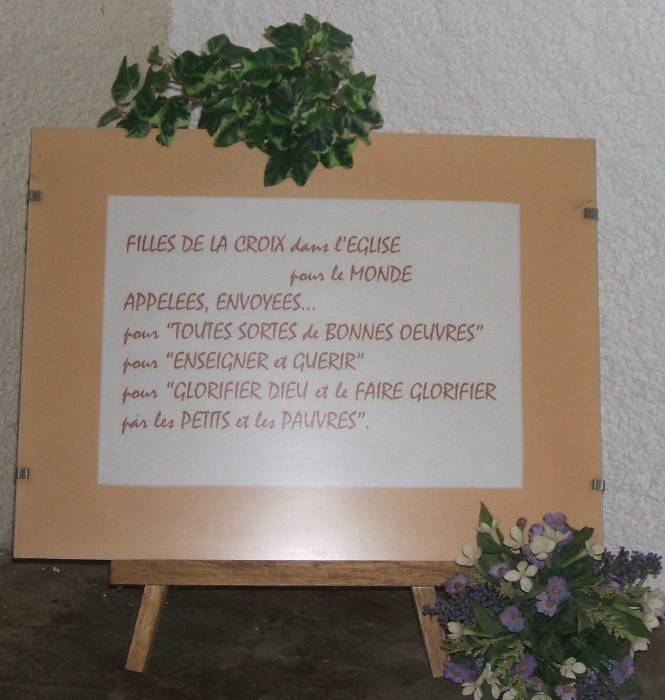 FILLES DE LA CROIX dans l'EGLISE
pour le MONDE
APPELEES, ENVOYEES...
pour "TOUTES SORTES de BONNES OEUVRES"
pour "ENSEIGNER et GUERIR"
pour "GLORIFIER DIEU et le FAIRE GLORIFIER
par les PETITS et les PAUVRES".